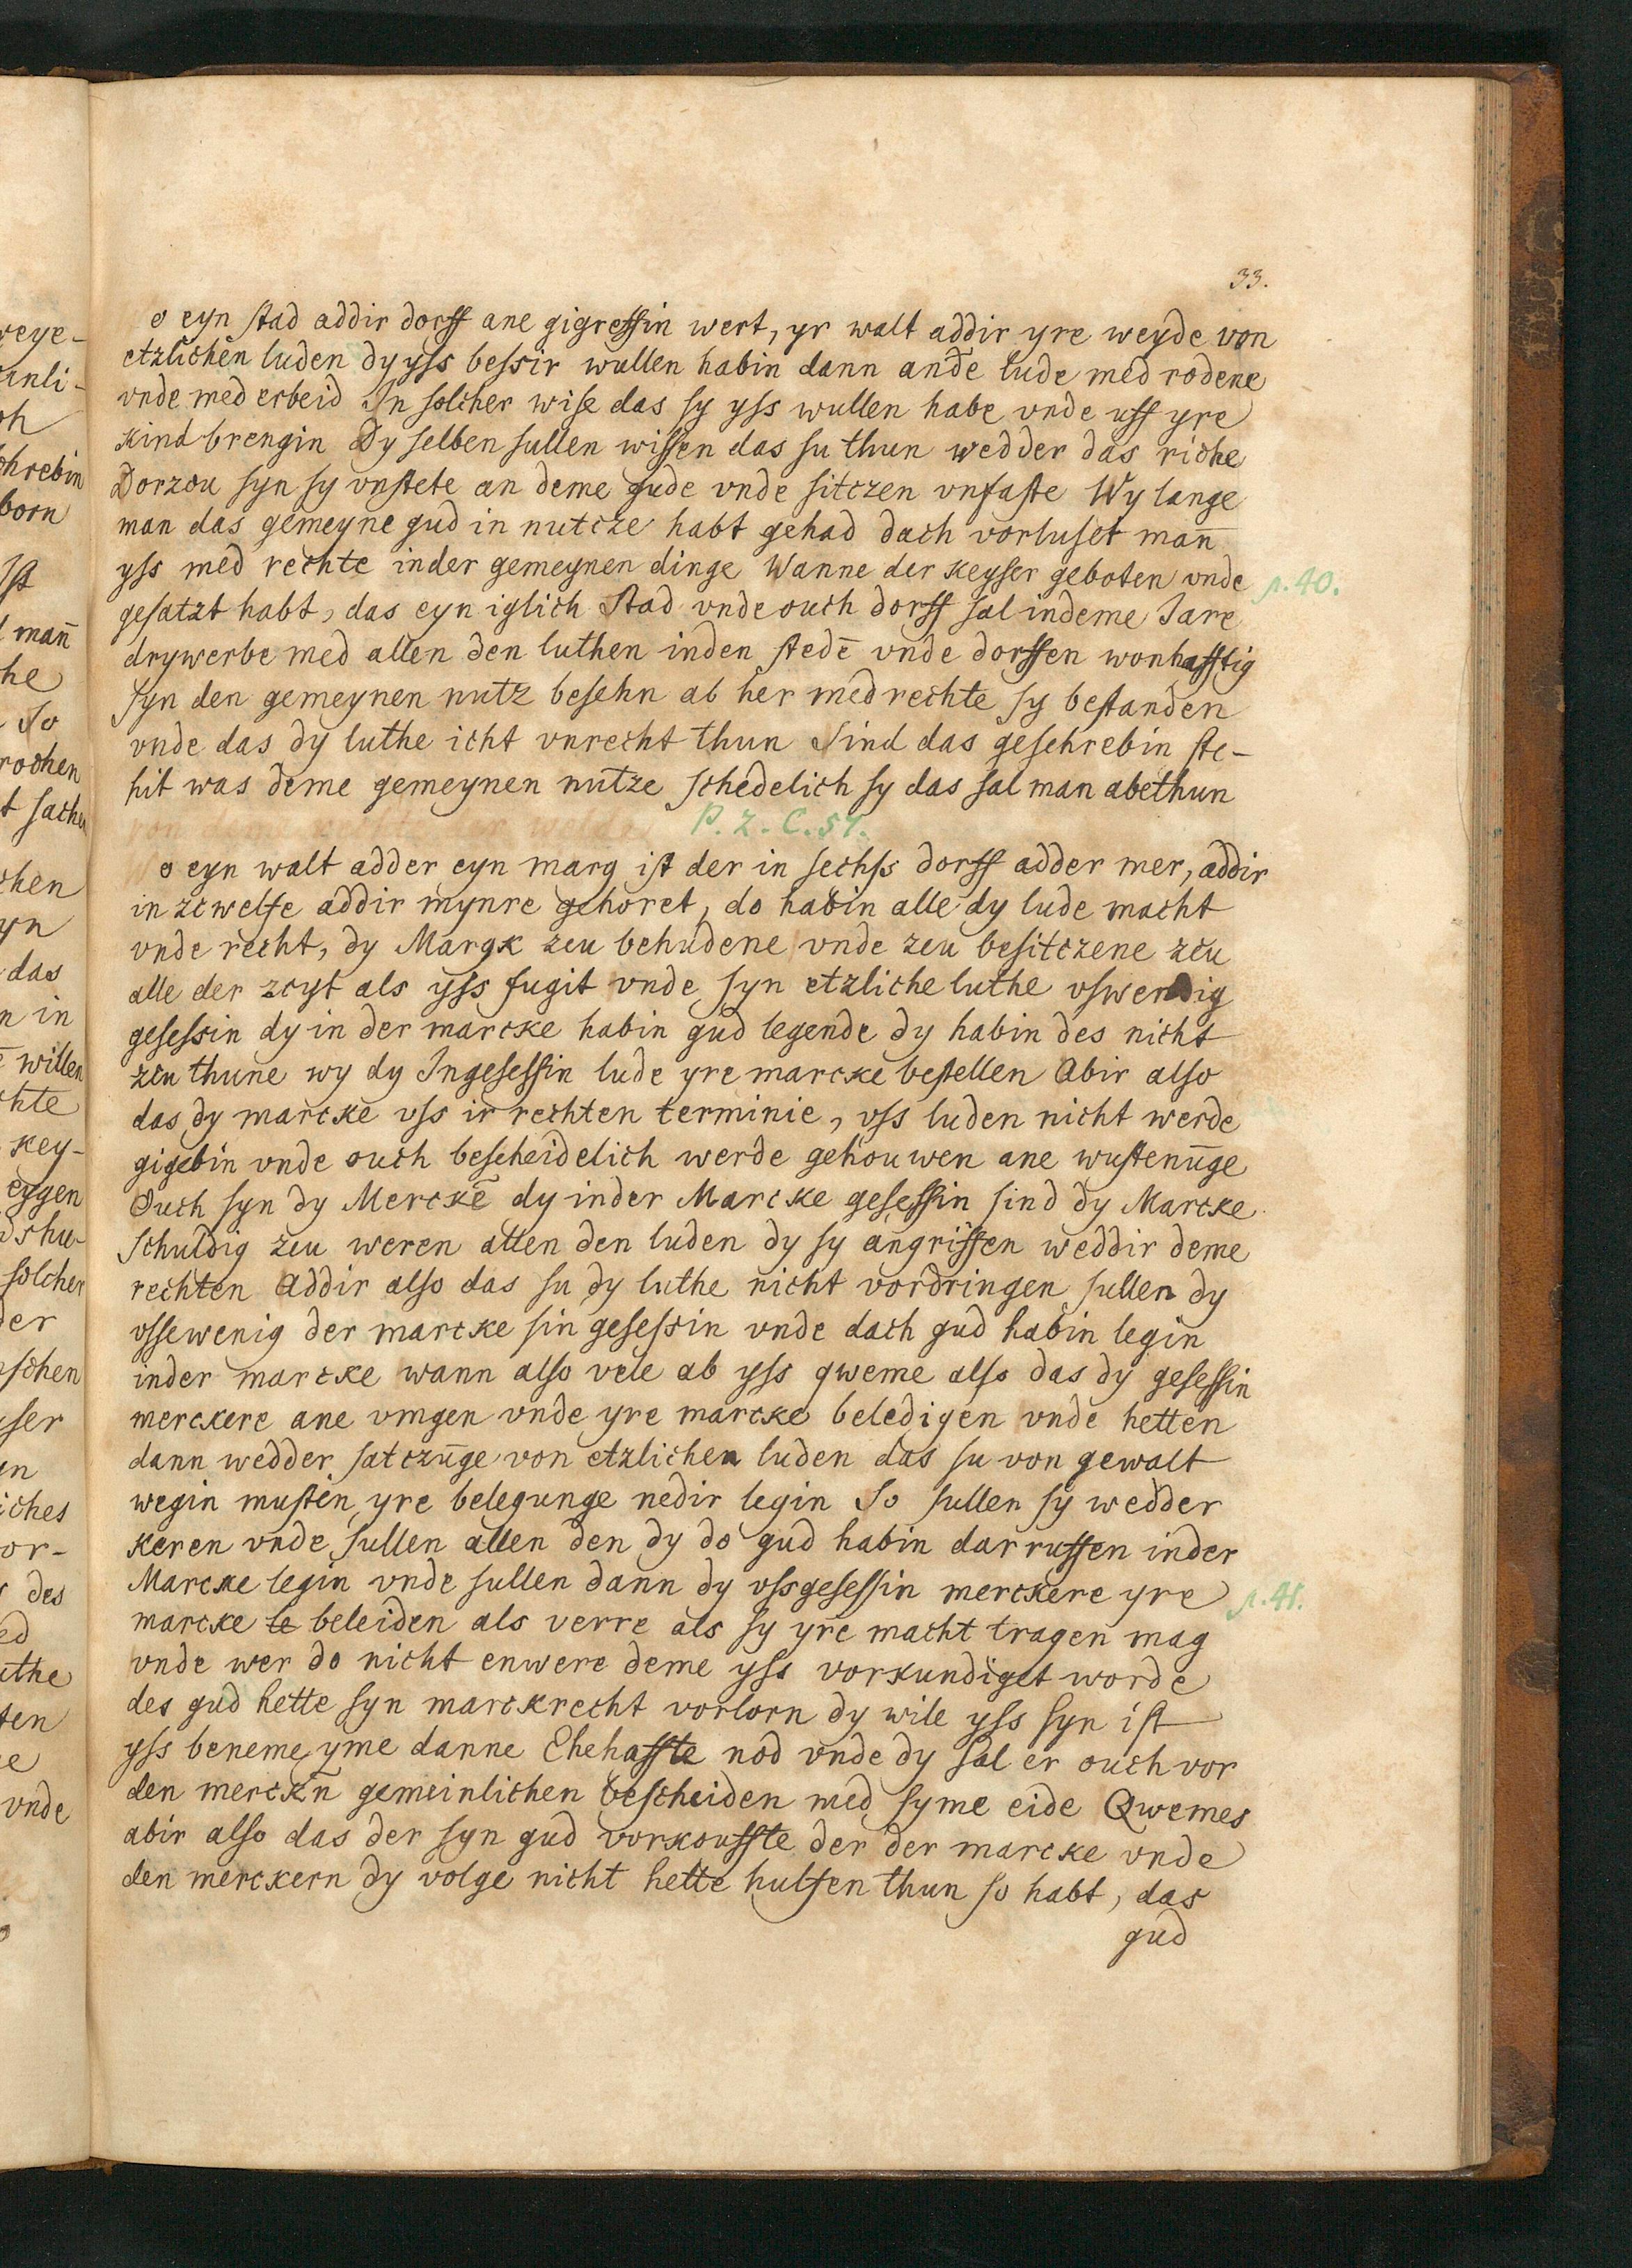 33.
o eyn stad addir dorff ane gigreffin wert, yr walt addir yre weyde von
etzlichen luden dy yss bessir wullen habin dann and̄e lude med rodene
vnde med erbeid In solcher wise das sy yss wullen habe vnde uff yre
kind brengin Dy selben sullen wissen das su thun wedder das riche
Dorzcu syn sy vnstete an deme gude vnde sitczen vnfaste Wy lange
man das gemeyne gud in nutcze habt gehad dach vorluset man̄
yss med rechte inder gemeynen dinge Wanne der keyser geboten vnde
p. 40.
gesatzt habt, das eyn iglich Stad vnde ouch dorff sal indeme Jare
drywerbe med allen den luthen inden stedē vnde dorffen wonhafftig
syn den gemeynen nutz besehn ab her med rechte sy bestanden
vnde das dy luthe icht vnrecht thun Sind das geschrebin ste-
hit was deme gemeynen nutze schedelich sy das sal man abethun
P. 2. C. 51.
o eyn walt adder eyn marg ist der in sechss dorff adder mer, addir
in zcwelfe addir mynre gehoret, do habin alle dy lude macht
vnde recht, dy Margk zcu behudene vnde zcu besitczene zcu
alle der zcyt als yss fugit vnde syn etzliche luthe vswendig
gesessin dy in der marcke habin gud legende dy habin des nicht
zcu thune wy dy Ingesessin lude yre marcke bestellen Abir also
das dy marcke vss ir rechten terminie, vss luden nicht werde
gigebin vnde ouch bescheidelich werde gehouwen ane wustenūge
Ouch syn dy Merckē dy inder Marcke gesessin sind dy Marcke
schuldig zcu weren allen den luden dy sy angriffen weddir deme
rechten Addir also das su dy luthe nicht vordringen sullen dy
vssewenig der marcke sin gesessin vnde dach gud habin legin
inder marcke wann also vele ab yss qweme also das dy gesessin
merckere ane vmgen vnde yre marcke beledigen vnde hetten
dann wedder satczūge von etzlichen luden das su von gewalt
wegin musten yre belegunge nedir legin So sullen sy wedder
keren vnde sullen allen den dy do gud habin dar ruffen inder
Marcke legin vnde sullen dann dy vssgesessin merckere yre
p. 41.
marcke le beleiden als verre als sy yre macht tragen mag
vnde wer do nicht enwere deme yss vorkundiget worde
des gud hette syn marckrecht vorlorn dy wile yss syn ist
yss beneme yme danne Ehehaffte nod vnde dy sal er ouch vor
den merckn̄ gemeinlichen bescheiden med syme eide Qwemes
abir also das der syn gud vorkouffte der der marcke vnde
den merckern dy volge nicht hette hulfen thun so habt, das
gud